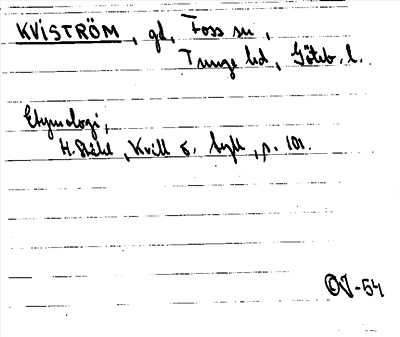 KVISTRÖM, gd, Foss sn,
Tunge hd, Göteb. l.
Etymologi,
H. Ståhl, Kvill o. bylt, p. 101.
OJ-54